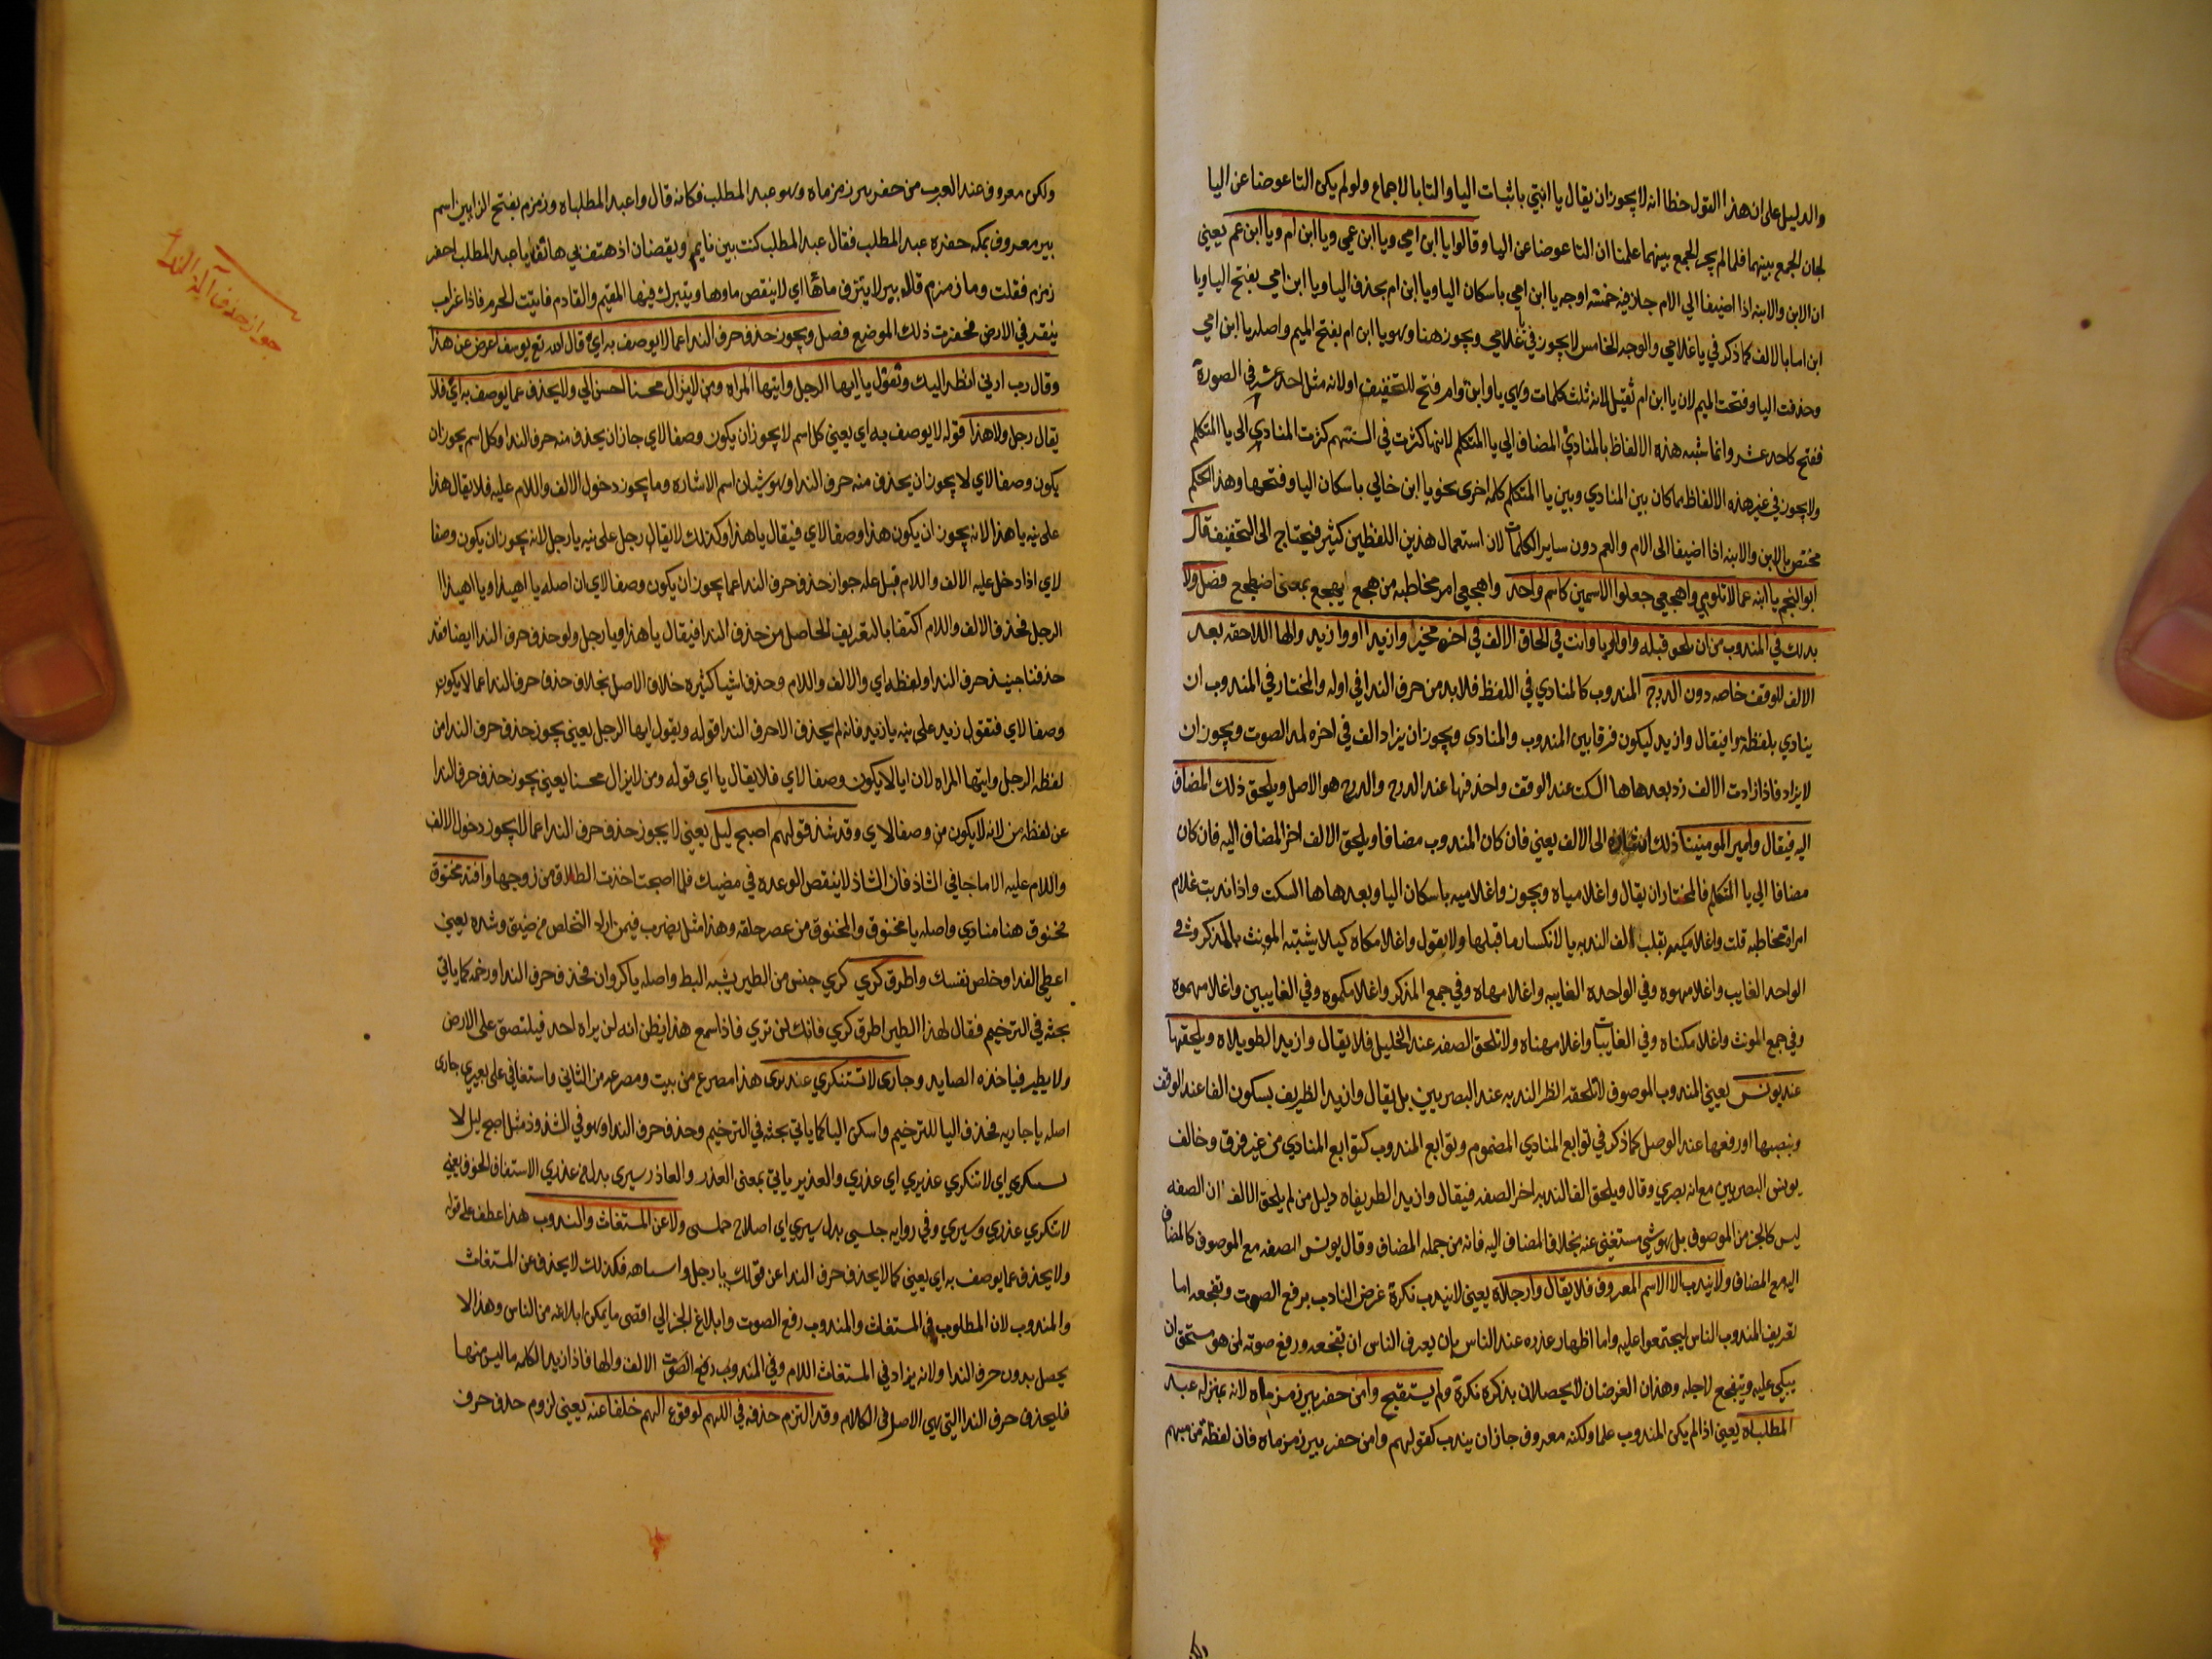 والدليل على ان هذا القول خطا انه لا يجوز ان يقال يا ابتي باثبات اليا والتا بالاجماع ولو لم يكن التا عوضا عن اليا
لجاز الجمع بينهما فلما لم يجز الجمع بينهما علمنا ان التا عوضا عن اليا وقالوا يا ابن امي ويا ابن عمي ويا ابن ام ويا ابن عم يعني
ان الابن والابنه اذا اضيفا الي الام جاز فيه خمسة اوجه يا ابن امي باسكان اليا ويا ابن ام بحذف اليا ويا ابن امي بفتح اليا ويا
ابن اما بالالف كما ذكر في يا غلامي والوجه الخامس لا يجوز في يا غلامي ويجوز هنا وهو يا ابن ام بفتح الميم واصله يا ابن امي
وحذفت اليا وفتحت الميم لان يا ابن ام ثقيل لانه ثلث كلمات وهي يا وابن وام فتح للتخفيف او لانه مثل احد عشر في الصورة
ففتح كاحد عشر وانما شبه هذه الالفاظ بالمنادي المضاف الي يا المتكلم لانها كثرت في السنتهم كثرت المنادي الى يا المتكلم
ولا يجوز في غير هذه الالفاظ مما كان بين المنادي وبين يا المتكلم كلمه اخرى نحو يا ابن خالي باسكان اليا وفتحها وهذا الحكم
مختص بالابن والابنه اذا اضيفا الى الام والعم دون ساير الكلمات لان استعمال هذين اللفظين كثير فيحتاج الى التخفيف قال
ابو النجم يا ابنه عما لا تلومي واهجعي جعلوا الاسمين كاسم واحد واهجعي امر مخاطبه من هجع يهجع بمعنى اضطجع فصل ولا
بد لك في المندوب من ان تلحق قبله وا او يا وانت في الحاق الالف في اخره مخير وازيدا او وازيد والها اللاحقه بعد
الالف للوقف خاصه دون الدرج المندوب كالمنادي في اللفظ فلا بد من حرف الندا في اوله والمختار في المندوب ان
ينادي بلفظة وا فيقال وازيد ليكون فرقا بين المندوب والمنادى ويجوز ان يزاد الف في اخره لمد الصوت ويجوز ان
لا يزاد فاذا زادت الالف زد بعدها ها السكت عند الوقف واحذفها عند الدرج والدرج هو الاصل ويلحق ذلك المضاف
اليه فيقال وامير المومنينا ذلك اشاره الى الالف يعني فان كان المندوب مضافا ويلحق الالف اخر المضاف اليه فان كان
مضافا الي يا المتكلم فالمختار ان يقال واغلامياه ويجوز واغلاميه باسكان اليا وبعدها ها السكت واذا ندبت غلام
امراة مخاطبه قلت واغلامكيه بقلب الف الندبه يا لانكسار ما قبلها ولا يقول واغلامكاه كيلا يشتبه المونث بالمذكر وفي
الواحد الغايب واغلامهوه وفي الواحده الغايبه واغلامهاه وفي جمع المذكر واغلامكموه وفي الغايبين واغلامهموه
وفي جمع المونث واغلامكناه وفي الغايبات واغلامهناه ولا تلحق الصفه عند الخليل فلا يقال وازيد الطويلاه ويلحقها
عند يونس يعني المندوب الموصوف لا تلحقه الف الندبه عند البصريين بل يقال وازيد الظريف بسكون الفا عند الوقف
وبنصبها او رفعها عند الوصل كما ذكر في توابع المنادي المضموم وتوابع المندوب كتوابع المنادي من غير فرق وخالف
يونس البصريين مع انه بصري وقال ويلحق الف الندبه اخر الصفه فيقال وازيد الظريفاه دليل من لم يلحق الالف ان الصفه
ليس كالجز من الموصوف بل هو شي مستغني عنه بخلاف المضاف اليه فانه من جمله المضاف وقال يونس الصفه مع الموصوف كالمضاف
اليه مع المضاف ولا يندب الا الاسم المعروف فلا يقال وارجلاه يعني لا يندب نكرة غرض النادب برفع الصوت وتفجعه اما
تعريف المندوب الناس ليجتمعوا عليه واما اظهار عذره عند الناس بان يعرف الناس ان تفجعه ورفع صوته لمن هو مستحق ان
يبكي عليه ويتفجع لاجله وهذان الغرضان لا يحصلان بذكره نكرة ولم يستقبح وامن حفر بير زمزماه لانه بمنزله عبد
المطلباه يعني اذا لم يكن المندوب علما ولكنه معروف جاز ان يندب كقولهم وامن حفر بير زمزماه فان لفظة من مبهم
ولكن معروف عند العرب من حفر بير زمزماه وهو عبد المطلب فكانه قال واعبد المطلباه وزمزم بفتح الزايين اسم
بير معروف بمكه حفره عبد المطلب فقال عبد المطلب كنت بين نايم ويقضان اذ هتف بي هاتف يا عبد المطلب احفر
زمزم فقلت وما زمزم قال بير لا ينزف ماها اي لا ينقص ماوها ويتبرك فيها المقيم والقادم فاتيت الحرم فاذا غراب
ينقر في الارض فحفرت ذلك الموضع فصل ويجوز حذف حرف الندا عما لا يوصف به اي قال الله تع يوسف اعرض عن هذا
وقال رب ارني انظر اليك وتقول يا ايها الرجل وايتها المراه ومن لا يزال محسنا احسن الي ولا يحذف عما يوصف به اي فلا
يقال رجل ولا هذا قوله لا يوصف به اي يعني كل اسم لا يجوز ان يكون وصفا لاي جاز ان يحذف منه حرف الندا وكل اسم يجوز ان
يكون وصفا لاي لا يجوز ان يحذف منه حرف الندا وهو شيان اسم الاشاره وما يجوز دخول الالف واللام عليه فلا يقال هذا
على نيه يا هذا لانه يجوز ان يكون هذا وصفا لاي فيقال يا هذا وكذلك لا يقال رجل على نيه يا رجل لانه يجوز ان يكون وصفا
لاي اذا دخل عليه الالف واللام قيل عله جواز حذف حرف الندا عما يجوز ان يكون وصفا لاي ان اصله يا ايهذا ويا ايهذا ا
الرجل فحذف الالف واللام اكتفا بالتعريف الحاصل من حذف الندا فيقال يا هذا ويا رجل ولو حذف حرف الندا ايضا فقد
حذفنا حينيذ حرف الندا ولفظه اي والالف واللام وحذف اشيا كثيره خلاف الاصل بخلاف حذف حرف الندا عما لا يكون
وصفا لاي فتقول زيد على نيه يا زيد فانه لم يحذف الا حرف الندا قوله ويقول ايها الرجل يعني يجوز حذف حرف الندا من
لفظه الرجل وايتها المراه لان ايا لا يكون وصفا لاي فلا يقال يا اي قوله ومن لا يزال محسنا يعني يجوز حذف حرف الندا
عن لفظه من لانه لا يكون من وصفا لاي وقد شذ قولهم اصبح ليل يعني لا يجوز حذف حرف الندا عما لا يجوز دخول الالف
واللام عليه الا ما جا في الشاذ فان الشاذ لا ينقص الوعده في مضيك فلما اصبحت اخذت الطلاق من زوجها وافتد مخنوق
مخنوق هنا منادي واصله يا مخنوق والمخنوق من عصر حلقه وهذا مثل يضرب فيمن اراد التخلص من ضيق وشده يعني
اعطي الفدا وخلص نفسك واطرق كري كري جنس من الطير يشبه البط واصله يا كروان فحذف حرف الندا ورخمه كما ياتي
بحثه في الترخيم فقال لهذا الطير اطرق كري فانك لن تري فاذا سمع هذا يظن انه لن يراه احد فيلتصق على الارض
ولا يطير فياخذه الصايد وجارى لا تستنكري عذيرى هذا مصرع من بيت ومصرعه من الثاني واستغاني على بعيري جارى
اصله يا جاريه فحذف اليا للترخيم واسكن اليا كما ياتي بحثه في الترخيم وحذف حرف الندا وهو في الشذوذ مثل اصبح ليل لا
تستنكري اي لا تنكري عذيري اي عذري والعذير ياتي بمعنى العذر والعاذر سيري بدل من عذيري الاستفاف الخوف يعني
لا تنكري عذري وسيري وفي روايه جلسي بدل سيري اي اصلاح حلسي ولا عن المستغاث والمندوب هذا عطف على قوله
ولا يحذف عما يوصف به اي يعني كما لا يحذف حرف الندا عن قولك يا رجل واسباهه فكذلك لا يحذف عن المستغاث
والمندوب لان المطلوب في المستغاث والمندوب رفع الصوت وابلاغ الخبر الي اقصى ما يمكن ابلاغه من الناس وهذا لا
يحصل بدون حرف الندا ولانه يزاد في المستغاث اللام وفي المندوب رفع الصوت الالف والها فاذا زيد الكلمه ما ليس منها
فليحذف حرف الندا التي هي الاصل في الكلام وقد التزم حذفه في اللهم لوقوع الميم خلفا عنه يعني لزوم حذف حرف
جواز حذف آلة الندا